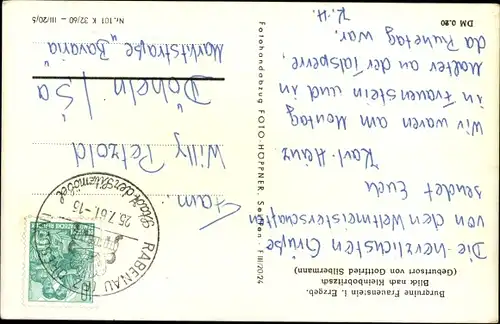 Burgruine Frauenstein i. Erzgeb.
Blick nach Kleinbobritzsch
(Geburtsort von Gottfried Silbermann)
Die herzlichsten Grüße
von den Weltmeisterschaften
sendet Euch
Karl-Heinz
Wir waren am Montag
in Frauenstein und in
Malter an der Talsperre,
da Ruhetag war.
K.-H.
DM 0.20
Fotohandabzug FOTO-HÖPPNER, Seiffen · F III/20/24
Nr. 101 K 32/60 — III/20/5
RABENAU
25.7.61.-15
Stadt der Sitzmöbel
Fam.
Willy Petzold
Döbeln / Sa
Marktstraße "Bavaria"